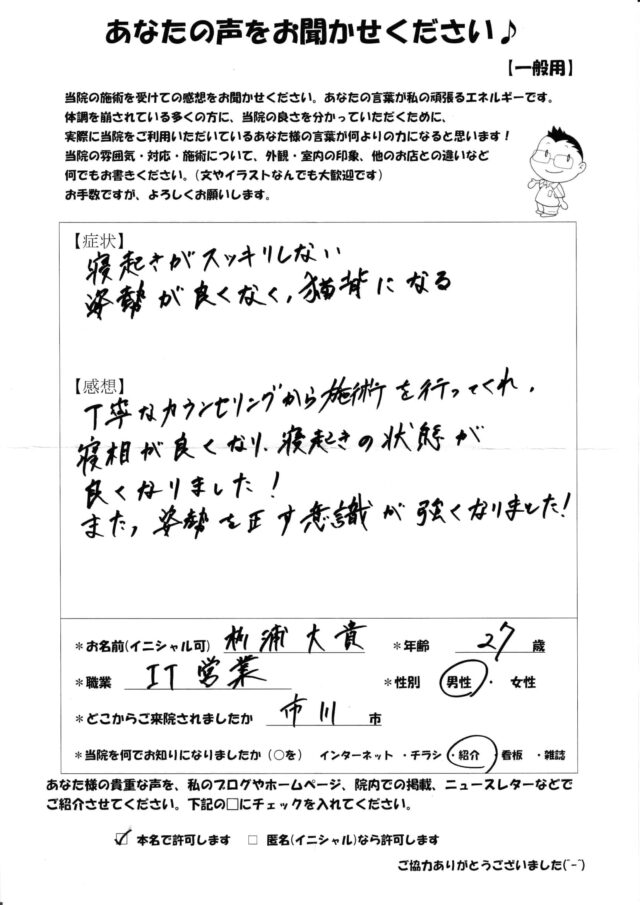 あなたの声をお聞かせください♪
【一般用】
当院の施術を受けての感想をお聞かせください。あなたの言葉が私の頑張るエネルギーです。
体調を崩されている多くの方に、当院の良さを分かっていただくために、
実際に当院をご利用いただいているあなた様の言葉が何よりの力になると思います！
当院の雰囲気・対応・施術について、外観・室内の印象、他のお店との違いなど
何でもお書きください。（文やイラストなんでも大歓迎です）
お手数ですが、よろしくお願いします。
【症状】
寝起きがスッキリしない
姿勢が良くなく，猫背になる
【感想】
丁寧なカウンセリングから施術を行ってくれ，
寝相が良くなり、寝起きの状態が
良くなりました！
また，姿勢を正す意識が強くなりました！
＊お名前(イニシャル可) 浦 大貴 ＊年齢 27 歳
＊職業 IT営業 ＊性別 男性 ・ 女性
＊どこからご来院されましたか 市川 市
＊当院を何でお知りになりましたか（○を） インターネット ・チラシ ・紹介 ・看板 ・雑誌
あなた様の貴重な声を、私のブログやホームページ、院内での掲載、ニュースレターなどで
ご紹介させてください。下記の□にチェックを入れてください。
☑ 本名で許可します □ 匿名(イニシャル)なら許可します
ご協力ありがとうございました(^-^)